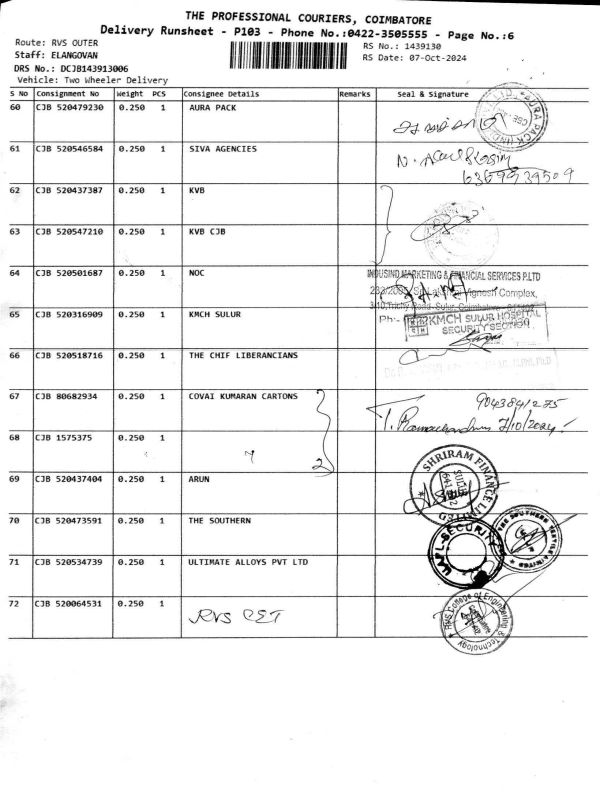 THE PROFESSIONAL COURIERS, COIMBATORE
Delivery Runsheet - P103 - Phone No.:0422-3505555 - Page No.:6
Route: RVS OUTER
RS No.: 1439130
Staff: ELANGOVAN
RS Date: 07-Oct-2024
DRS No.: DCJB143913006
Vehicle: Two Wheeler Delivery
S No Consignment No Weight PCS Consignee Details Remarks Seal & Signature
60 CJB 520479230 0.250 1 AURA PACK
AURA PACK
61 CJB 520546584 0.250 1 SIVA AGENCIES
62 CJB 520437387 0.250 1 KVB
63 CJB 520547210 0.250 1 KVB CJB
64 CJB 520501687 0.250 1 NOC
INDUSIND MARKETING & FINANCIAL SERVICES P.LTD
Vignesh Complex,
65 CJB 520316909 0.250 1 KMCH SULUR
Ph:-
KMCH SULUR HOSPITAL
SECURITY SECTION
66 CJB 520518716 0.250 1 THE CHIF LIBERANCIANS
67 CJB 80682934 0.250 1 COVAI KUMARAN CARTONS
9043841275
T. Ramachandran 7/10/2024
68 CJB 1575375 0.250 1
2
69 CJB 520437404 0.250 1 ARUN
SHRIRAM FINANCE LIMITED
SULUR
70 CJB 520473591 0.250 1 THE SOUTHERN
THE SOUTHERN SERVICE
71 CJB 520534739 0.250 1 ULTIMATE ALLOYS PVT LTD
UAPL-SECURITY
72 CJB 520064531 0.250 1 RVS CET
RVS College of Engineering & Technology
Coimbatore